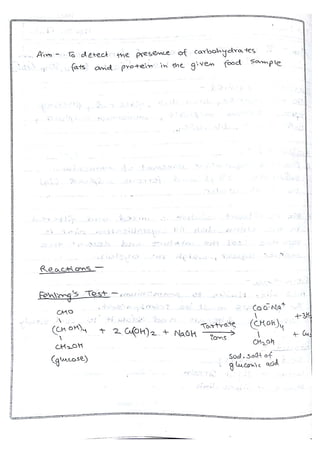 Aim - To detect the presence of carbohydrates
fats and protein in the given food sample
Reactions -
Fehling's Test -
CHO
(CHOH)4 + 2 Cu(OH)2 + NaOH Tartrate ions →
CH2OH
(glucose)
COO-Na+
(CHOH)4
CH2OH
Sod. salt of
gluconic acid